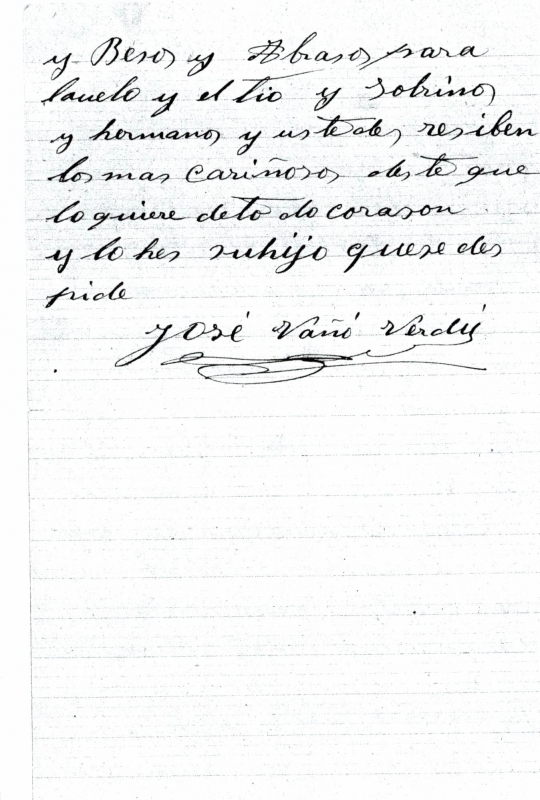 y Besos y Abrasos para
lauelo y el tio y sobrinos
y hermanos y ustedes resiben
los mas cariñosos deste que
lo quiere de to do corason
y lo hes suhijo quese des
pide
José Vañó Verdú